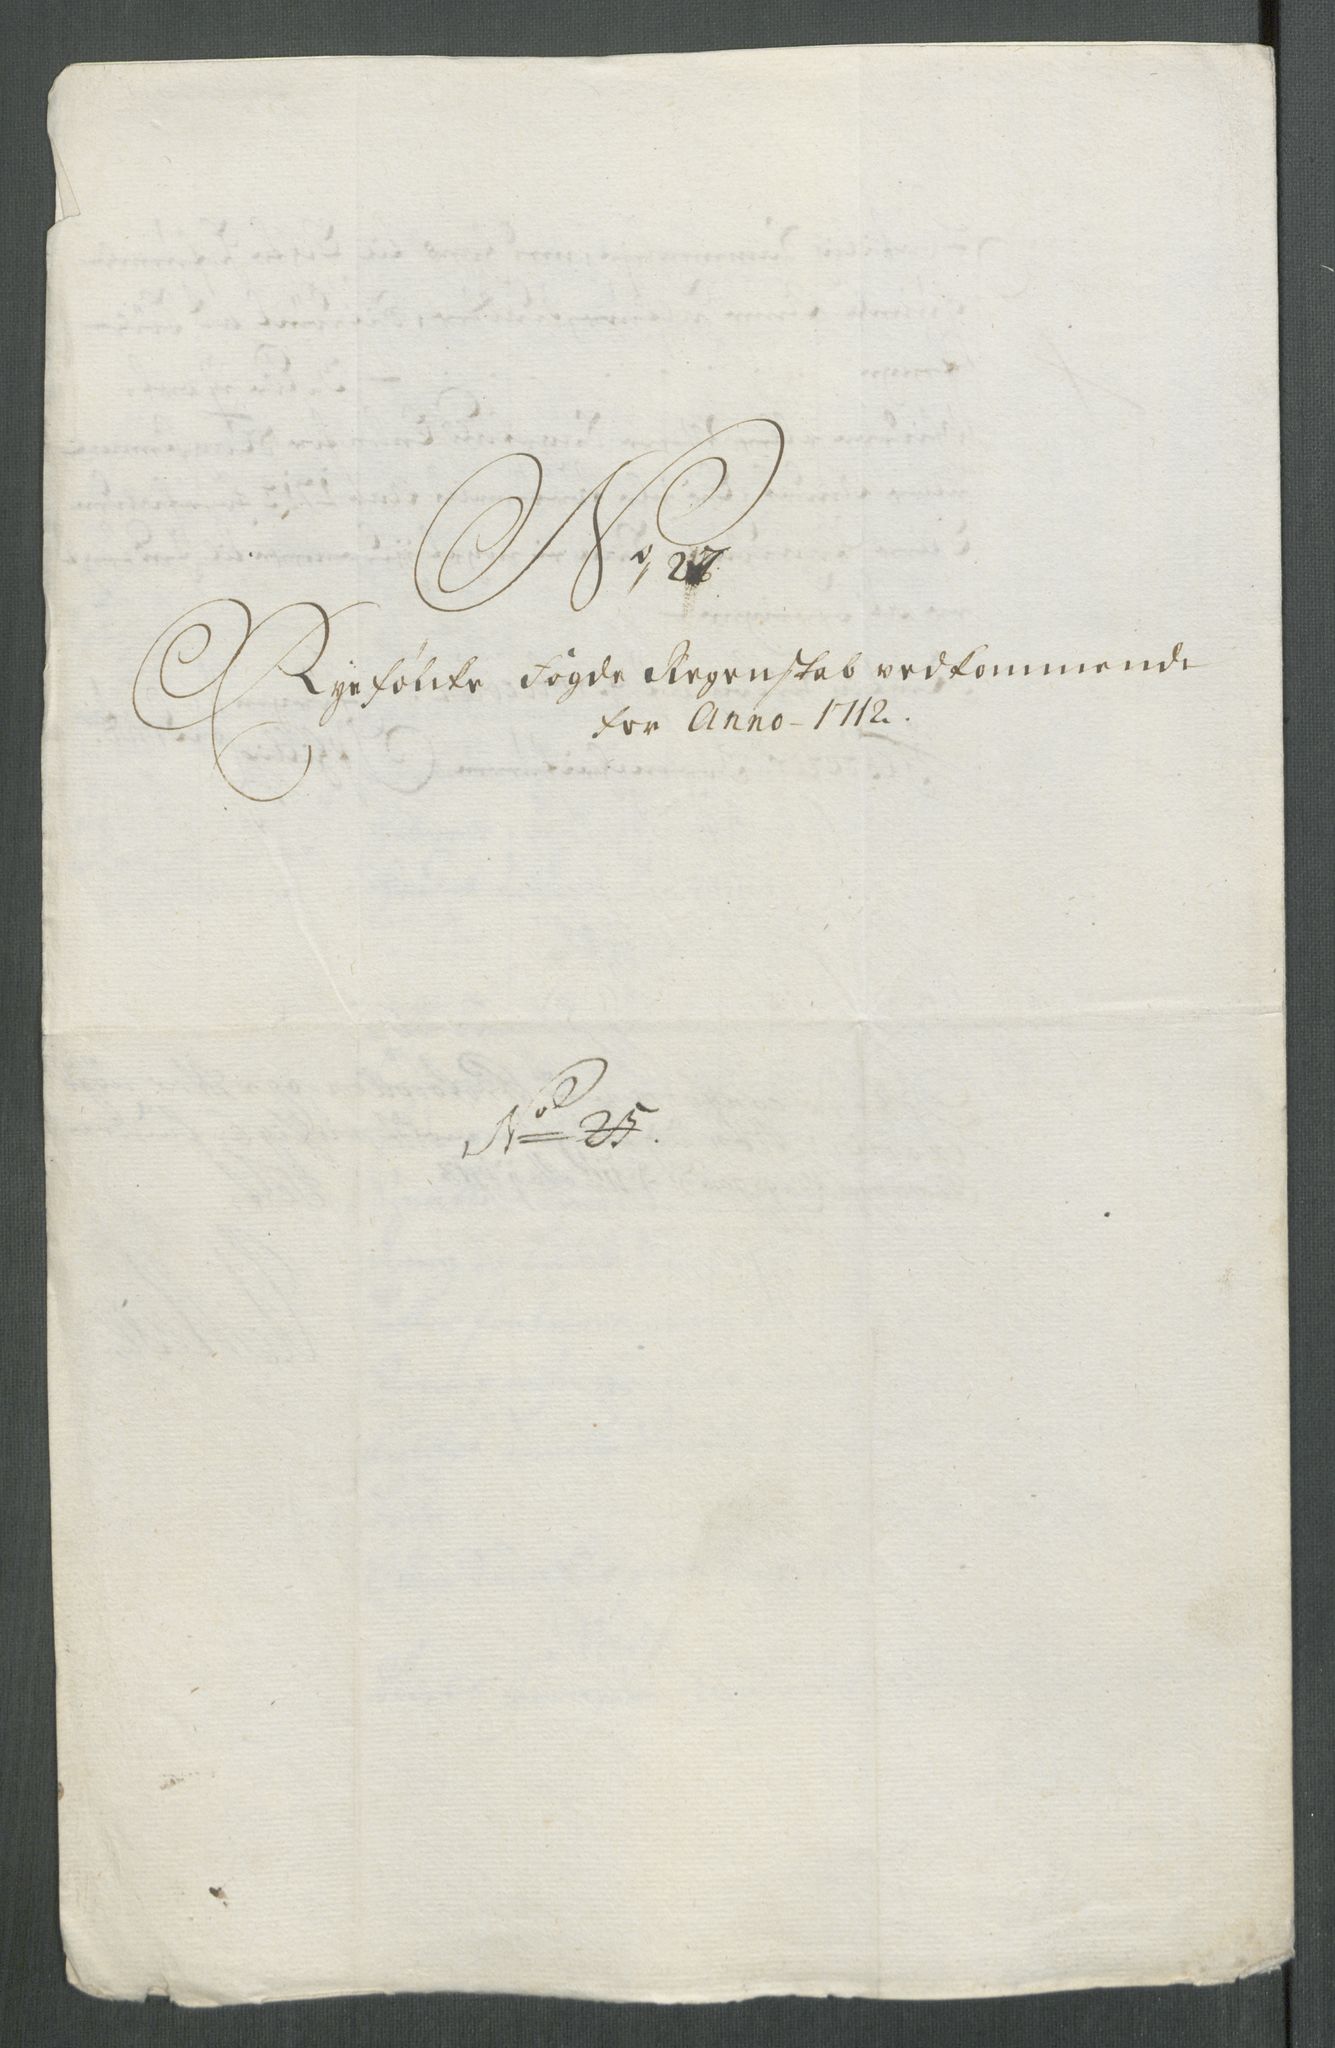 No, 27
Ryefölcke Fogde Regenskab vedkommende
for Anno - 1712.
No 25.